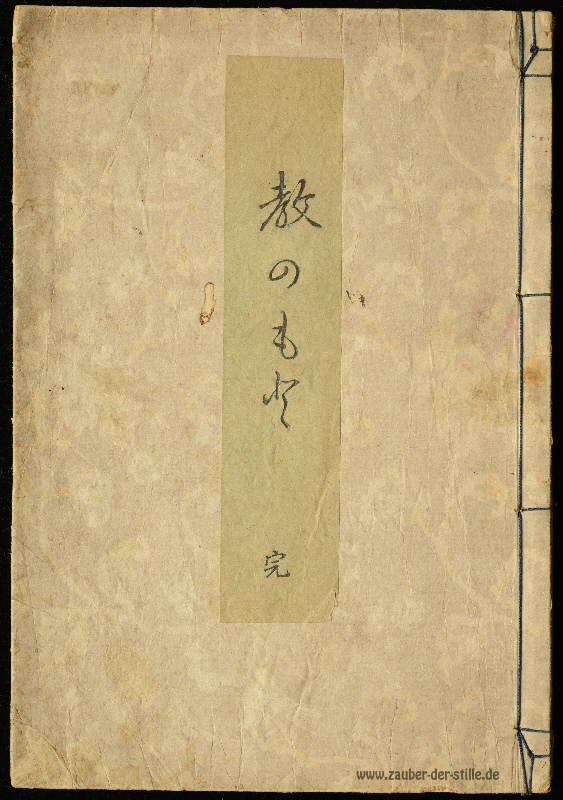 教のもと
完
www.zauber-der-stille.de